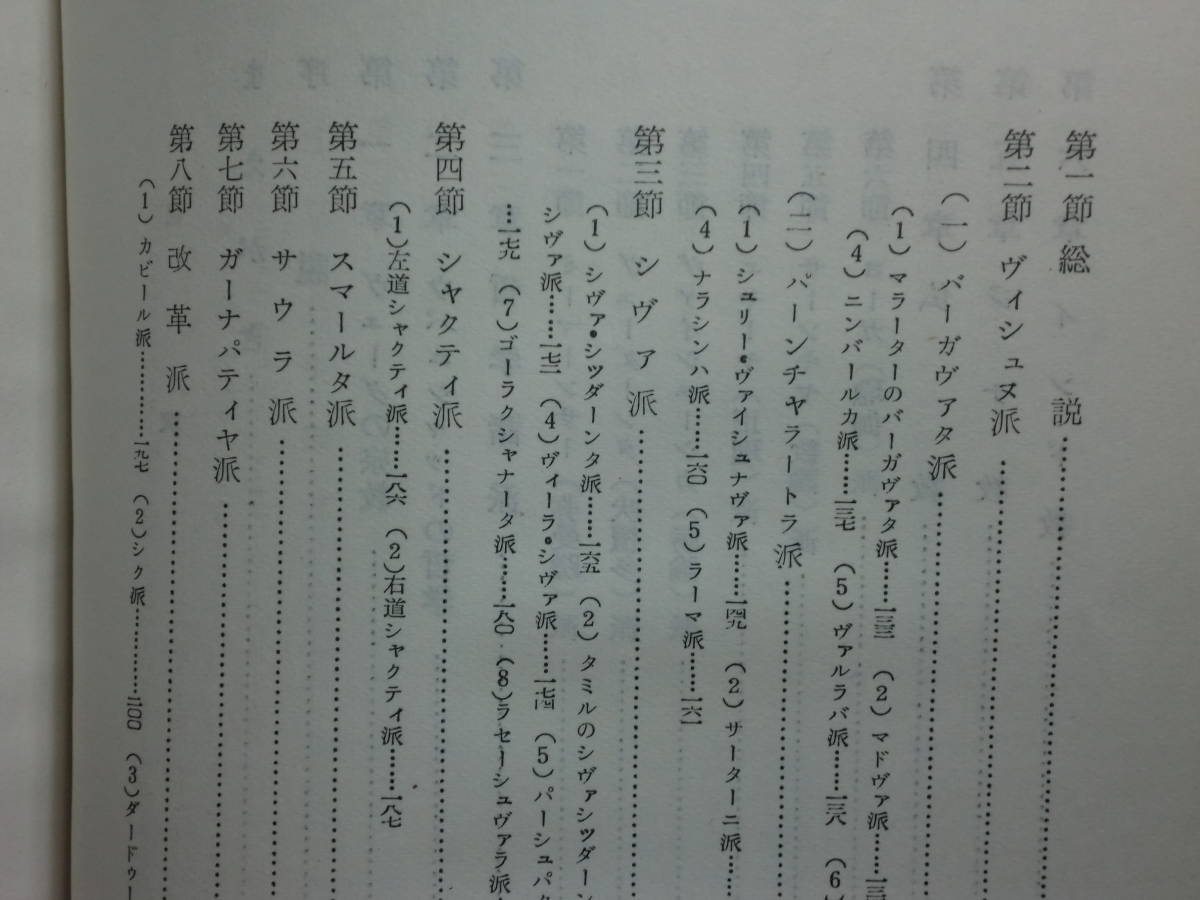 第一節 総 説……………
第二節 ヴィシュヌ派……………
(一) バーガヴァタ派……………
(1) マラーターのバーガヴァタ派……一三三 (2) マドヴァ派……一三
(4) ニンバールカ派……一三七 (5) ヴァルラバ派……一三八 (6
(二) パーンチャラートラ派……………
(1) シュリー・ヴァイシュナヴァ派……一四九 (2) サーターニ派……
(4) ナラシンハ派……一六〇 (5) ラーマ派……一六一
第三節 シヴァ派……………
(1) シヴァ・シッダーンタ派……一六五 (2) タミルのシヴァシッダーン
シヴァ派……一七三 (4) ヴィーラ・シヴァ派……一七四 (5) パーシュパタ
…一七九 (7) ゴーラクシャナータ派……一八〇 (8) ラセーシュヴァラ派
第四節 シャクティ派……………
(1) 左道シャクティ派……一八六 (2) 右道シャクティ派……一八七
第五節 スマールタ派……………
第六節 サウラ派……………
第七節 ガーナパティヤ派……………
第八節 改革派……………
(1) カビール派…………一九七 (2) シク派…………二〇〇 (3) ダードゥー